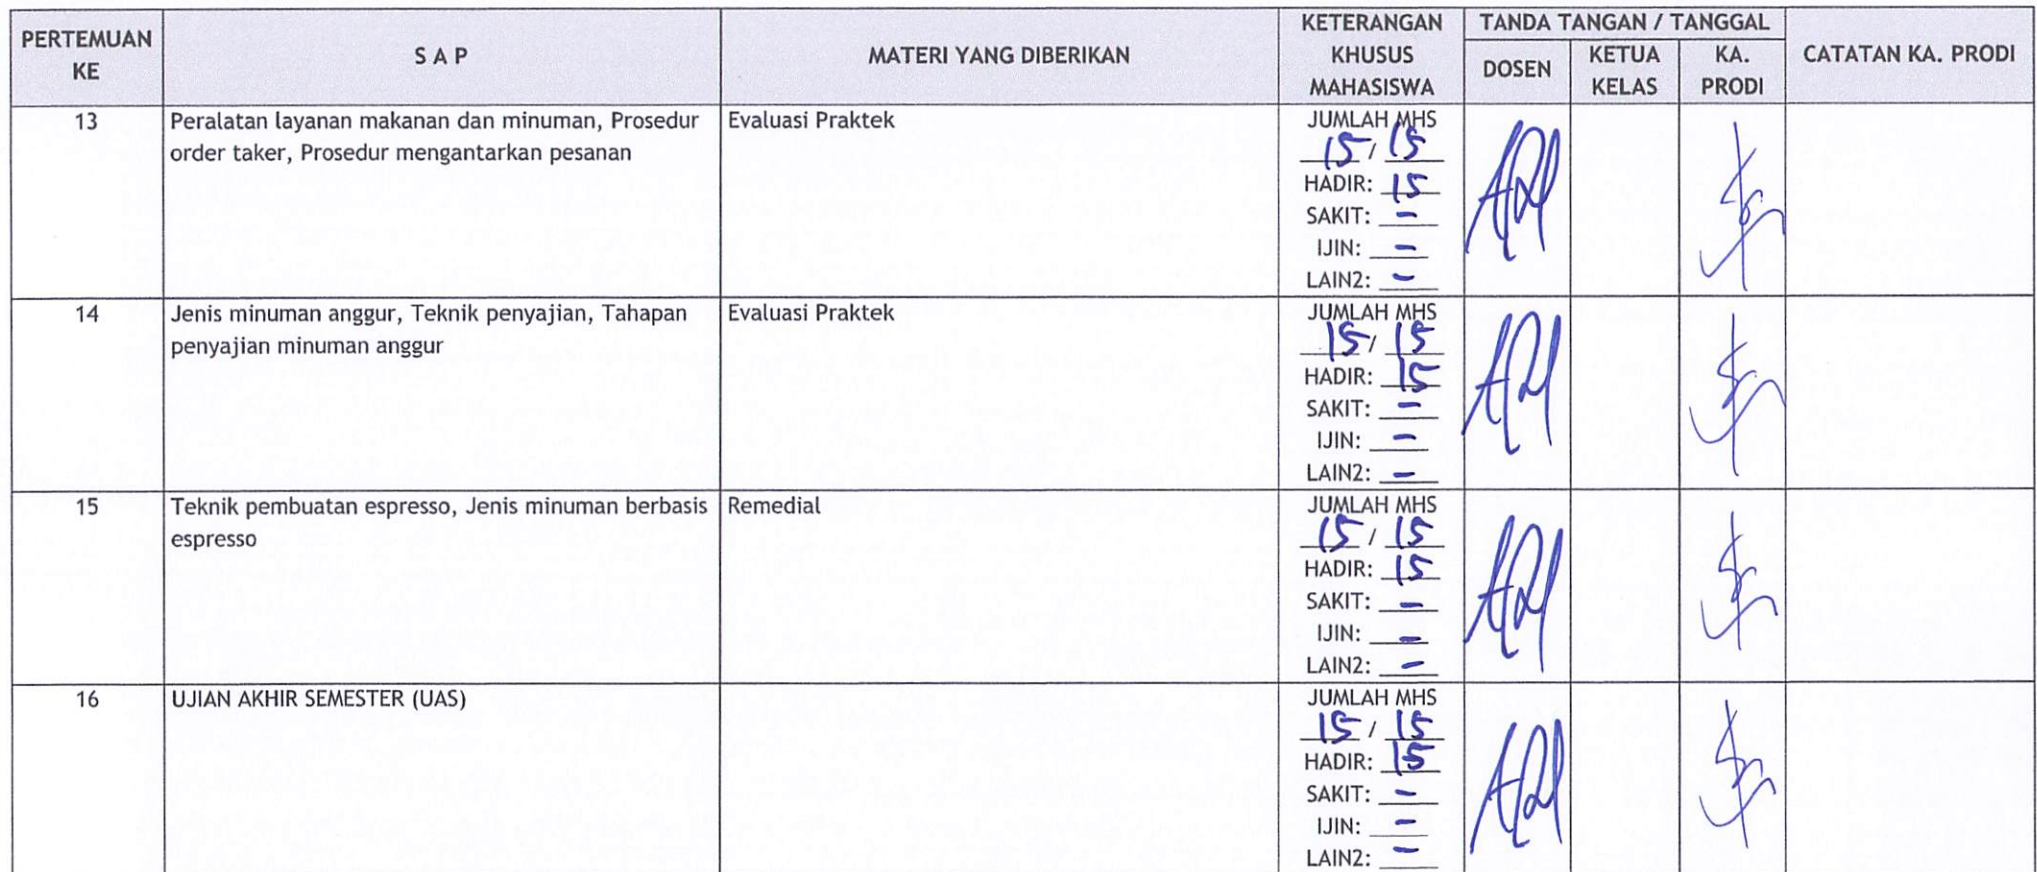 PERTEMUAN KE
S A P
MATERI YANG DIBERIKAN
KETERANGAN KHUSUS MAHASISWA
TANDA TANGAN / TANGGAL
DOSEN
KETUA KELAS
KA. PRODI
CATATAN KA. PRODI
13
Peralatan layanan makanan dan minuman, Prosedur
order taker, Prosedur mengantarkan pesanan
Evaluasi Praktek
JUMLAH MHS
15 / 15
HADIR: 15
SAKIT: -
IJIN: -
LAIN2: -
14
Jenis minuman anggur, Teknik penyajian, Tahapan
penyajian minuman anggur
Evaluasi Praktek
JUMLAH MHS
15 / 15
HADIR: 15
SAKIT: -
IJIN: -
LAIN2: -
15
Teknik pembuatan espresso, Jenis minuman berbasis
espresso
Remedial
JUMLAH MHS
15 / 15
HADIR: 15
SAKIT: -
IJIN: -
LAIN2: -
16
UJIAN AKHIR SEMESTER (UAS)
JUMLAH MHS
15 / 15
HADIR: 15
SAKIT: -
IJIN: -
LAIN2: -